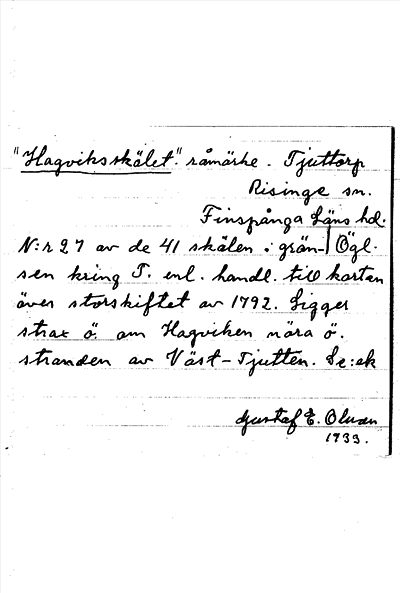 "Hagviksskälet." råmärke. Tjuttorp
Risinge sn.
Finspånga Läns hd.
N:r 27 av de 41 skälen i grän- Ögl.
sen kring T. enl. handl. till kartan
över storskiftet av 1792. Ligger
strax ö. om Hagviken nära ö.
stranden av Väst-Tjutten. Se: ek
Gustaf E. Olsson
1933.